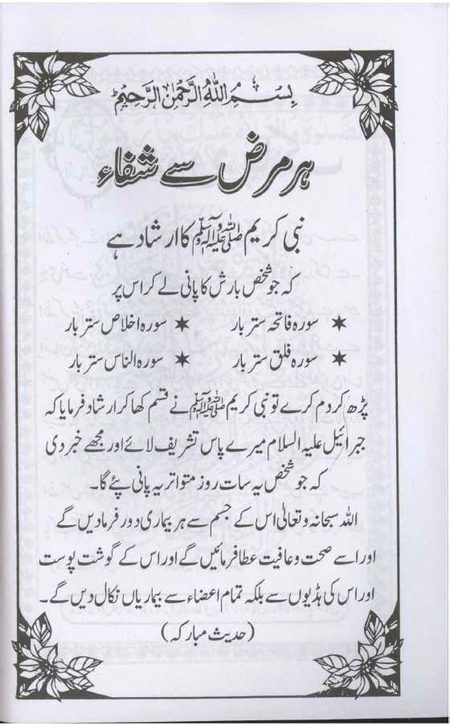 بِسْمِ اللهِ الرَّحْمٰنِ الرَّحِيْمِ
ہر مرض سے شفاء
نبی کریم ﷺ کا ارشاد ہے
کہ جو شخص بارش کا پانی لے کر اس پر
✶ سورہ فاتحہ ستر بار ✶ سورہ اخلاص ستر بار
✶ سورہ فلق ستر بار ✶ سورہ الناس ستر بار
پڑھ کر دم کرے تو نبی کریم ﷺ نے قسم کھا کر ارشاد فرمایا کہ
جبرائیل علیہ السلام میرے پاس تشریف لائے اور مجھے خبر دی
کہ جو شخص یہ سات روز متواتر یہ پانی پئے گا۔
اللہ سبحانہ وتعالیٰ اس کے جسم سے ہر بیماری دور فرمادیں گے
اور اسے صحت و عافیت عطا فرمائیں گے اور اس کے گوشت پوست
اور اس کی ہڈیوں سے بلکہ تمام اعضاء سے بیماریاں نکال دیں گے۔
(حدیث مبارکہ)